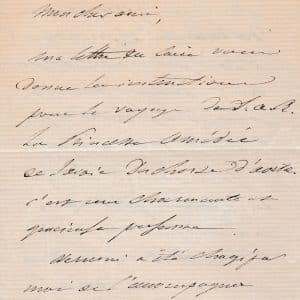 Mon cher ami,
ma lettre du Caire vous
donne les instructions
pour le voyage de S. A. R.
La Princesse Amédée
de Savoie Duchesse d'Aoste.
c'est une charmante et
généreuse personne.
a été chargé
moi de l'accompagner